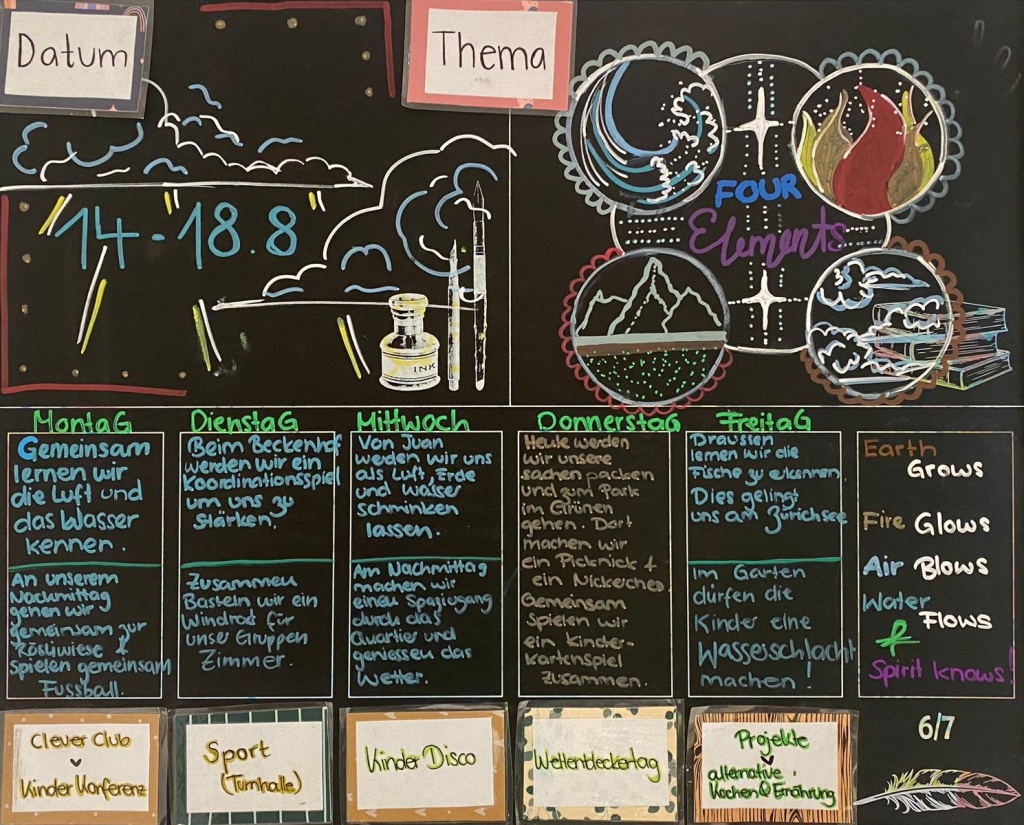 Datum
Thema
14 - 18.8
FOUR
Elements
INK
MontaG
Gemeinsam
lernen wir
die Luft und
das Wasser
kennen.
An unserem
Nachmittag
gehen wir
gemeinsam zur
Röslwiese &
spielen gemeinsam
Fussball.
DienstaG
Beim Beckenhof
werden wir ein
Koordinationsspiel
um uns zu
stärken.
Zusammen
Basteln wir ein
Windrad für
unser Gruppen
Zimmer.
Mittwoch
Von Juan
werden wir uns
als Luft, Erde
und Wasser
schminken
lassen.
Am Nachmittag
machen wir
einen Spaziergang
durch das
Quartier und
geniessen das
Wetter.
DonnerstaG
Heute werden
wir unsere
sachen packen
und zum Park
im Grünen
gehen. Dort
machen wir
ein Picknick +
ein Nickerchen
Gemeinsam
Spielen wir
ein Kinder-
kartenspiel
zusammen.
FreitaG
Draussen
lernen wir die
Fische zu erkennen
Dies gelingt
uns am Zürichsee
Im Garten
dürfen die
Kinder eine
Wasserschlacht
machen!
Earth
Grows
Fire Glows
Air Blows
Water
Flows
&
Spirit knows!
Clever Club
Kinder Konferenz
Sport
(Turnhalle)
Kinder Disco
Weltentdeckertag
Projekte
alternative,
Kochen & Ernährung
6/7